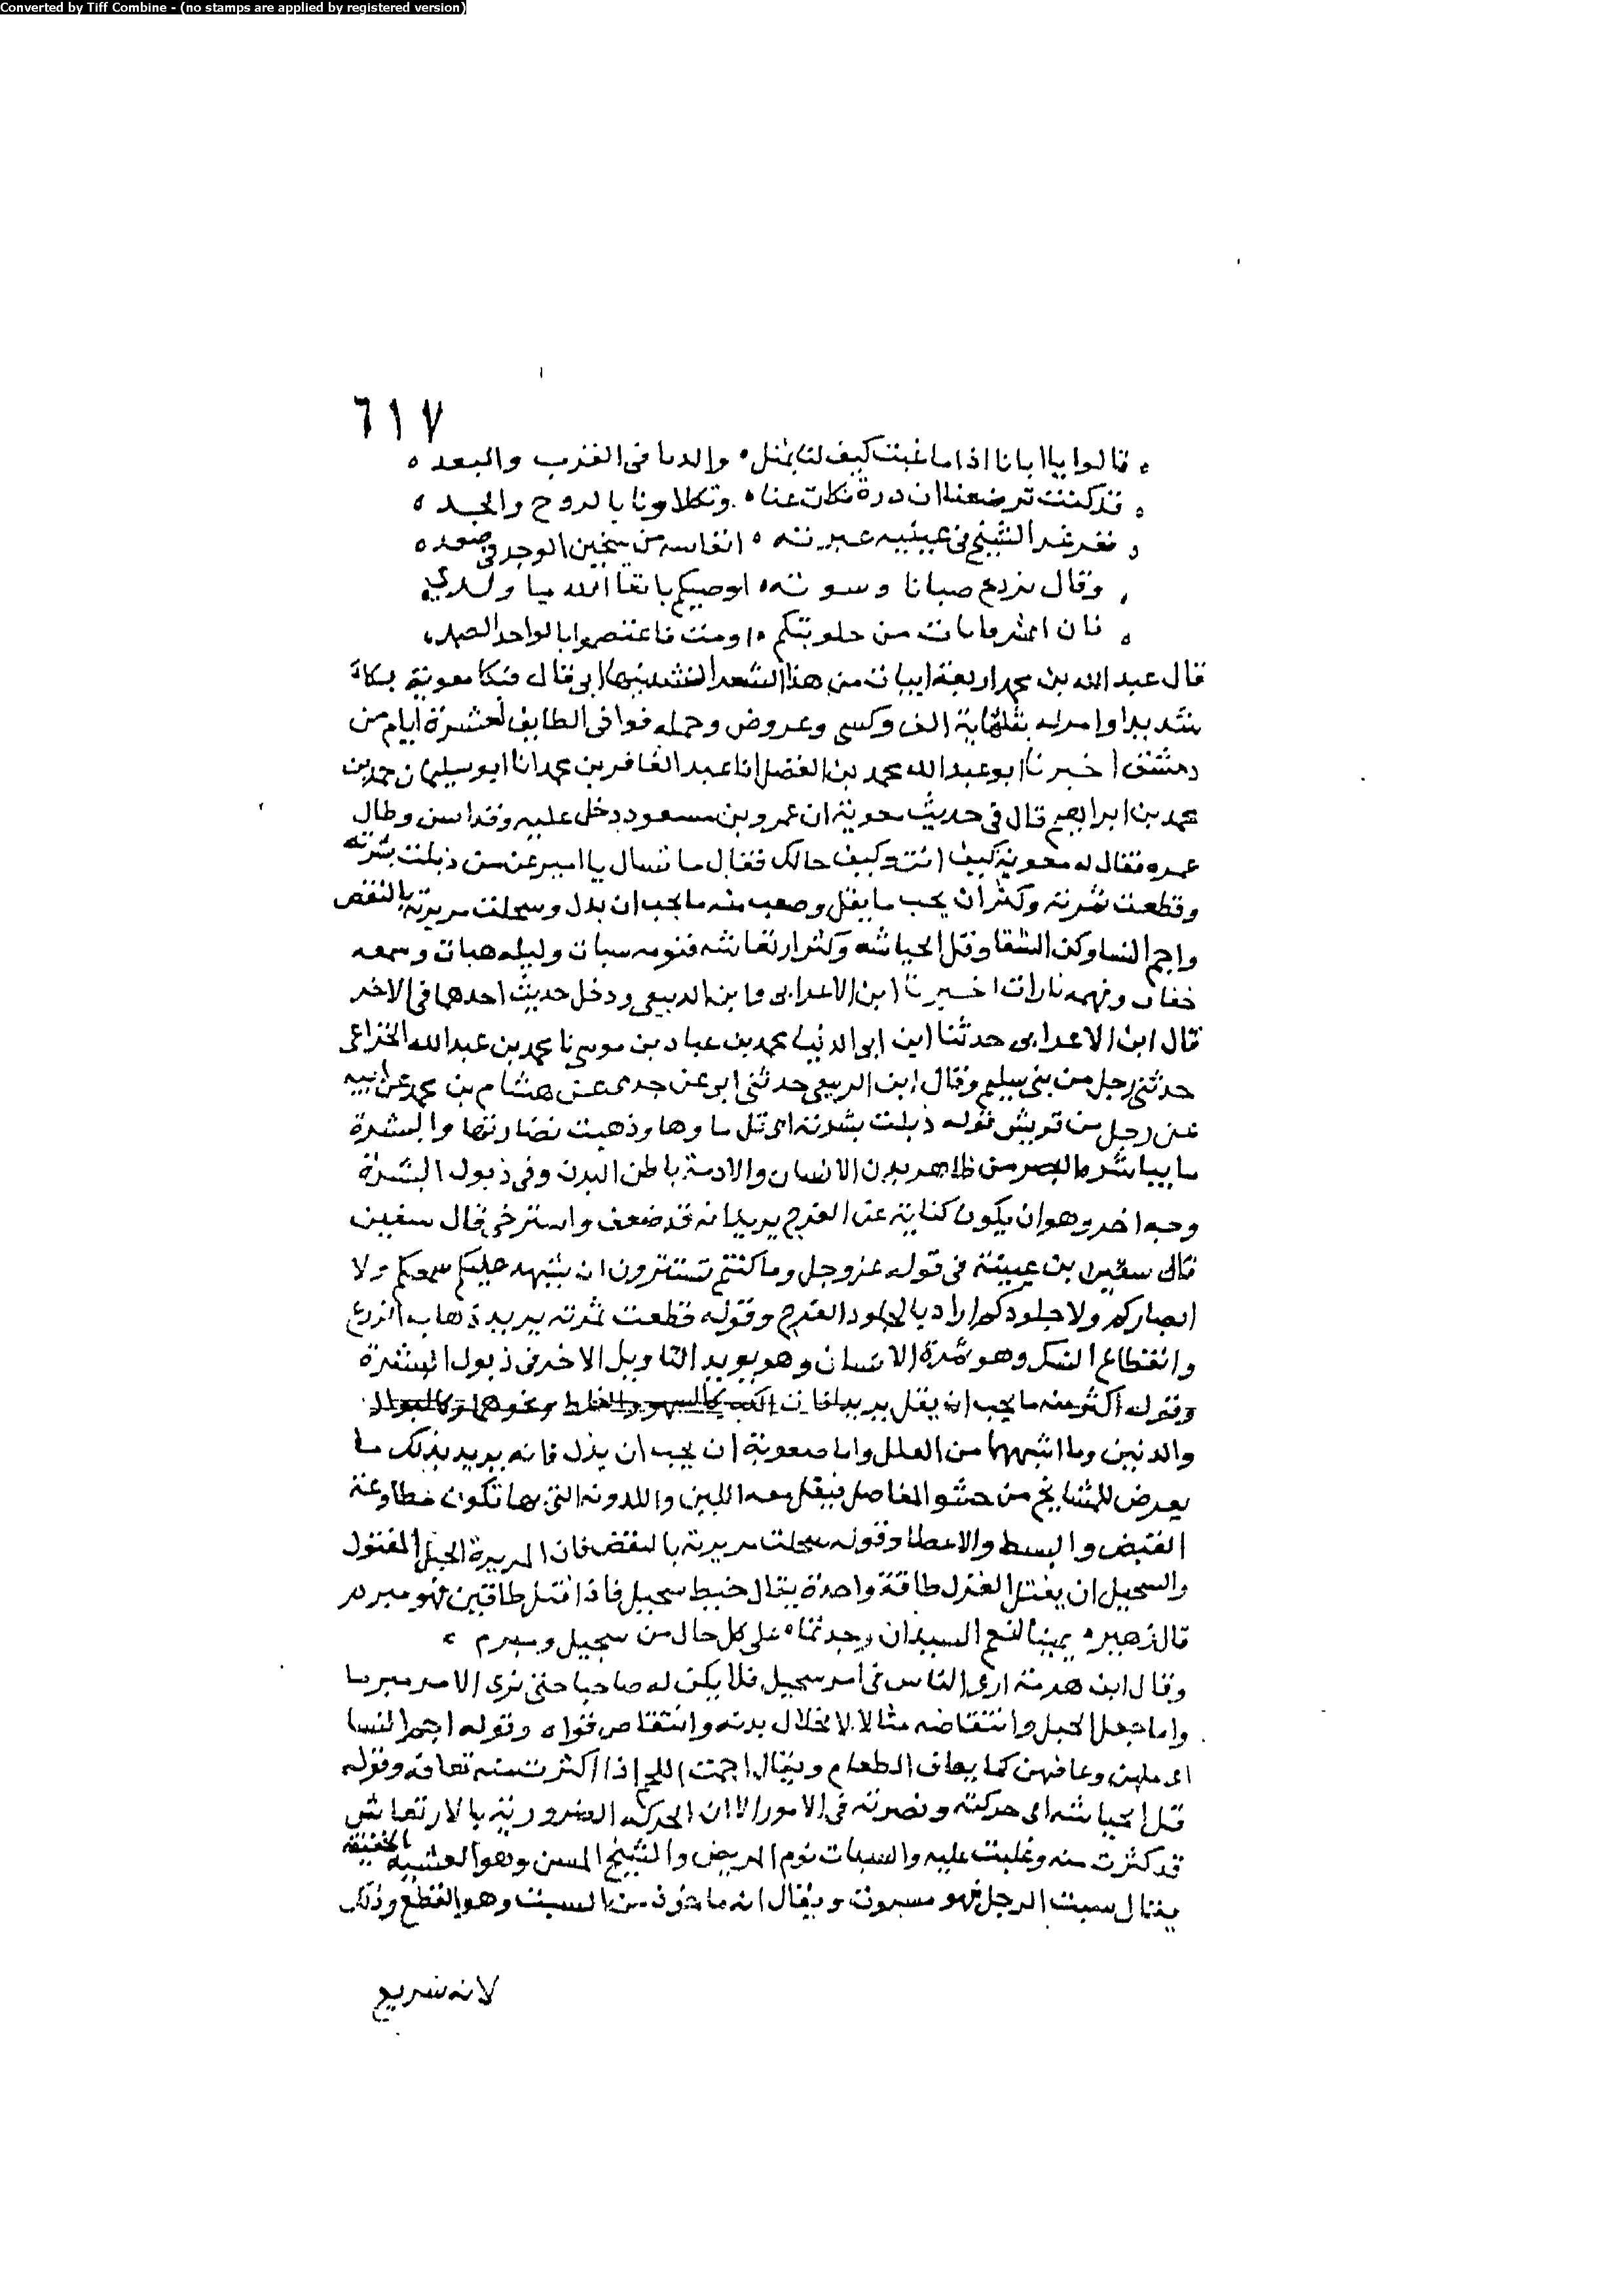 Converted by Tiff Combine - (no stamps are applied by registered version)
٦١٧
قالوا يا ابانا اذا ما غبت كيف لنا بمثل والدنا فى القرب والبعد
قد كنت ترضعنا ان درة نكات عنا وتكلاونا بالروح والجسد
فغرغر الشيخ فى عينيه عبرته انفاسه من سخين الوجد فى صعد
وقال يزدع صبيانا ونسوته اوصيكم باتقا الله يا ولدي
فان اعش فايات من حلوبتكم او مت فاعتصموا بالواحد الصمد
قال عبد الله بن محمد اربعة ابيات من هذا الشعر انشدنيها ابى قال فبكا معوية بكاء
شديدا وامر له بثلثماية الف وكسى وعروض وحمله فوافى الطايف لعشرة ايام من
دمشق اخبرنا ابو عبد الله محمد بن الفضل انا عبد الغافر بن محمد انا ابو سليمان حمد بن
محمد بن ابراهيم قال فى حديث معوية ان عمرو بن مسعود دخل عليه وقد اسن وطال
عمره فقال له معوية كيف انت وكيف حالك فقال ما تسال يا امير عن من ذبلت بشرته
وقطعت ثمرته وكثر ان يحب ما يقل وصعب منه ما يجب ان يذل وسحلت مريرته بالنقض
واجم النسا وكن الشفا وقل انحياشه وكثر ارتعاشه فنومه سبات وليله هبات وسمعه
خفات وفهمه تارات اخبرنا ابن الاعرابى وابن الربيعى ودخل حديث احدهما فى الاخر
قال ابن الاعرابى حدثنا ابن ابى الدنيا محمد بن عباد بن موسى نا محمد بن عبد الله الخزاعى
حدثنى رجل من بنى سليم وقال ابن الربيعى حدثنى ابى عن جدى عن هشام بن محمد عن ابيه
عن رجل من قريش قوله ذبلت بشرته اى قل ماوها وذهبت نضارتها والبشرة
ما يباشره البصر من ظاهر بدن الانسان والادمة باطن البدن وفى ذبول البشرة
وجه اخر وهو ان يكون كناية عن الفرج يريد انه قد ضعف واسترخى قال سفين
قال سفين بن عيينة فى قوله عز وجل وما كنتم تستترون ان يشهد عليكم سمعكم ولا
ابصاركم ولا جلودكم اراد بالجلود الفرج وقوله قطعت ثمرته يريد ذهاب الزرع
وانقطاع النسل وهو ثمرة الانسان وهو يويد التاويل الاخر فى ذبول البشرة
وقوله اكثر منه ما يجب ان يقل يريد افات الكبر كالسهو والغلط ونحوهما وكالبوال
والدنين وما اشبههما من العلل واما صعوبة ان يجب ان يذل فانه يريد بذلك ما
يعرض للمشايخ من حشو المفاصل فيقل معه اللين واللدونه التى بها تكون مطاوعة
القبض والبسط والاعطا وقوله سحلت مريرته بالنقض فان المريرة الحبل المفتول
والسحيل ان يفتل الغزل طاقة واحدة يقال خيط سحيل فاذا فتل طاقين فهو مبرم
قال زهير يمينا لنعم السيدان وجدتما على كل حال من سحيل ومبرم
وقال ابن هرمة ارى الناس فى امر سحيل فلا يكن له صاحبا حتى ترى الامر مبرما
وانما جعل الحبل وانتقاضه مثالا لانحلال بدنه وانتقاص قواه وقوله اجم النسا
اى ملهن وعافهن كما يعاف الطعام ويقال اجمت اللحم اذا اكثرت منه تعافه وقوله
قل انحياشه اى حركته وتصرفه فى الامور الا ان الحركه الضرورية بالارتعاش
قد كثرت منه وغلبت عليه والسبات نوم المريض والشيخ المسن وهو الغشيه الخفيفة
يقال سبت الرجل فهو مسبوت ويقال انه ماخوذ من السبت وهو القطع وذلك
لانه سريع